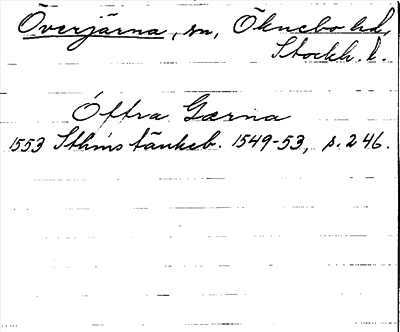 Överjärna, sn, Öknebo hd,
Stockh. l.
Öffra Gærna
1553 Sthms tänkeb. 1549-53, s. 246.